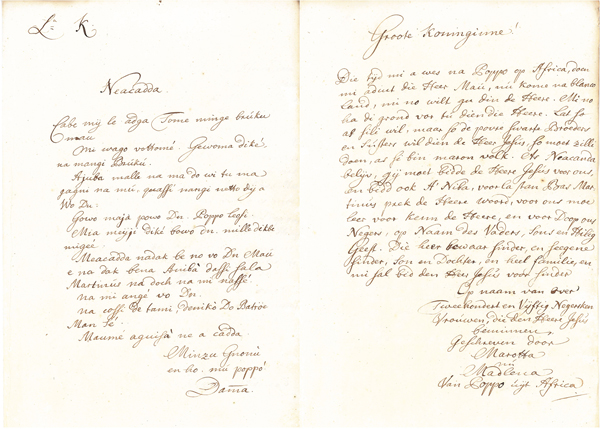 L: K
Neacadda.
Cabe mig le adga Tome minge brúku
mau
Me wago vottomé. Gewoma diké,
na mangi Brúkú.
Ajuba malle na ma do wi tu ma
gagni na mi, paaffi nangi netto dy a
Wo Du.
Gowo maja powo Du. Poppo Legfi.
Mia meyji diké bowo du. mille dikbe
migée.
Meacadda nadak be no vo Du Mau
e na dak bena Anibà daffi sala
Martinus na doch na mi naffé
na mi angé vo Du.
na coffi de tami, denikò Do Batroe
Mau Fé.
Maume aguisà ne a cadda
Minzu Gnonú
en ho. mú poppó
Dam̄a.
Groote Koninginne!
Die tyd mi a wes na Poppo op Africa, doen
mi a dint die Heer Mau, nú kome na blanco
Land, mi no wilt gu din de Heere. Mi no
ha di grond vor tú dien die Heere. Lat so
at fili wil, maar so de povre Swarte Broeders
en Susters wil dien de Heer Jesus, so moet zilli
doen, as so bin maron volk. As Neacanda
believ, gij moet bidde de Heere Jesus voor ons,
en bidd ook A'Niba, voor la staan Bas Mar-
tinus prek de Heere woord, voor ons moe
leer voor kenn de Heere, en voor Doop ons
Negers, op Naam des Vaders, Sons en Heilig
Geest. Die Heer bewaar sinder, en seegene
sinder, son en Dochter, en heel Familie, en
mi sal bid den Heer Jesus voor sinder
Op naam van over
Tweehondert en Vijftig Negersken
Vrouwen, die den Heere Jesus
beminnen,
Geschreven door
Marotta
nu
Madlena
Van Poppo uyt Africa